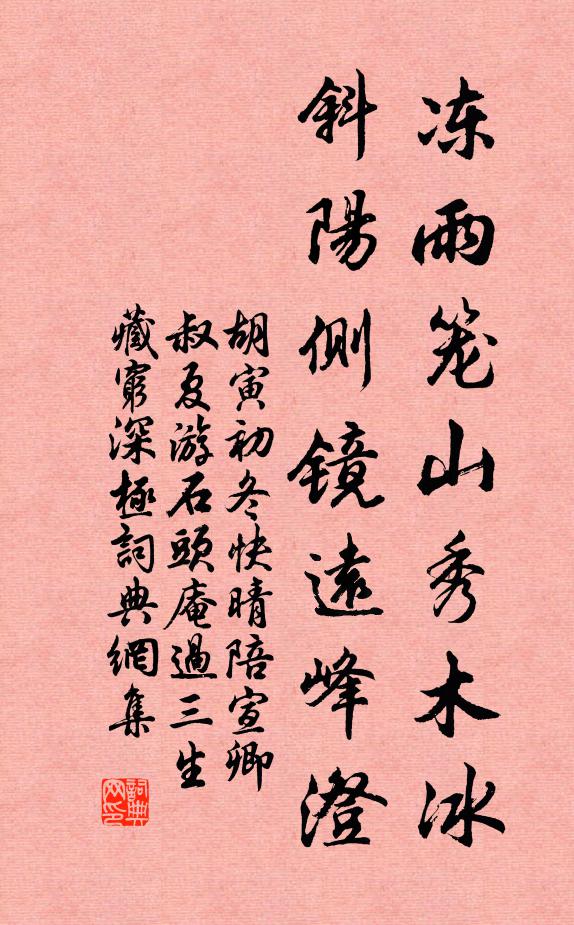 冻雨笼山秀木冰
斜陽側鏡遠峰澄
胡寅初冬快晴陪宣卿
叔夏游石頭庵過三生
藏窮深極詞典網集
詞典网印